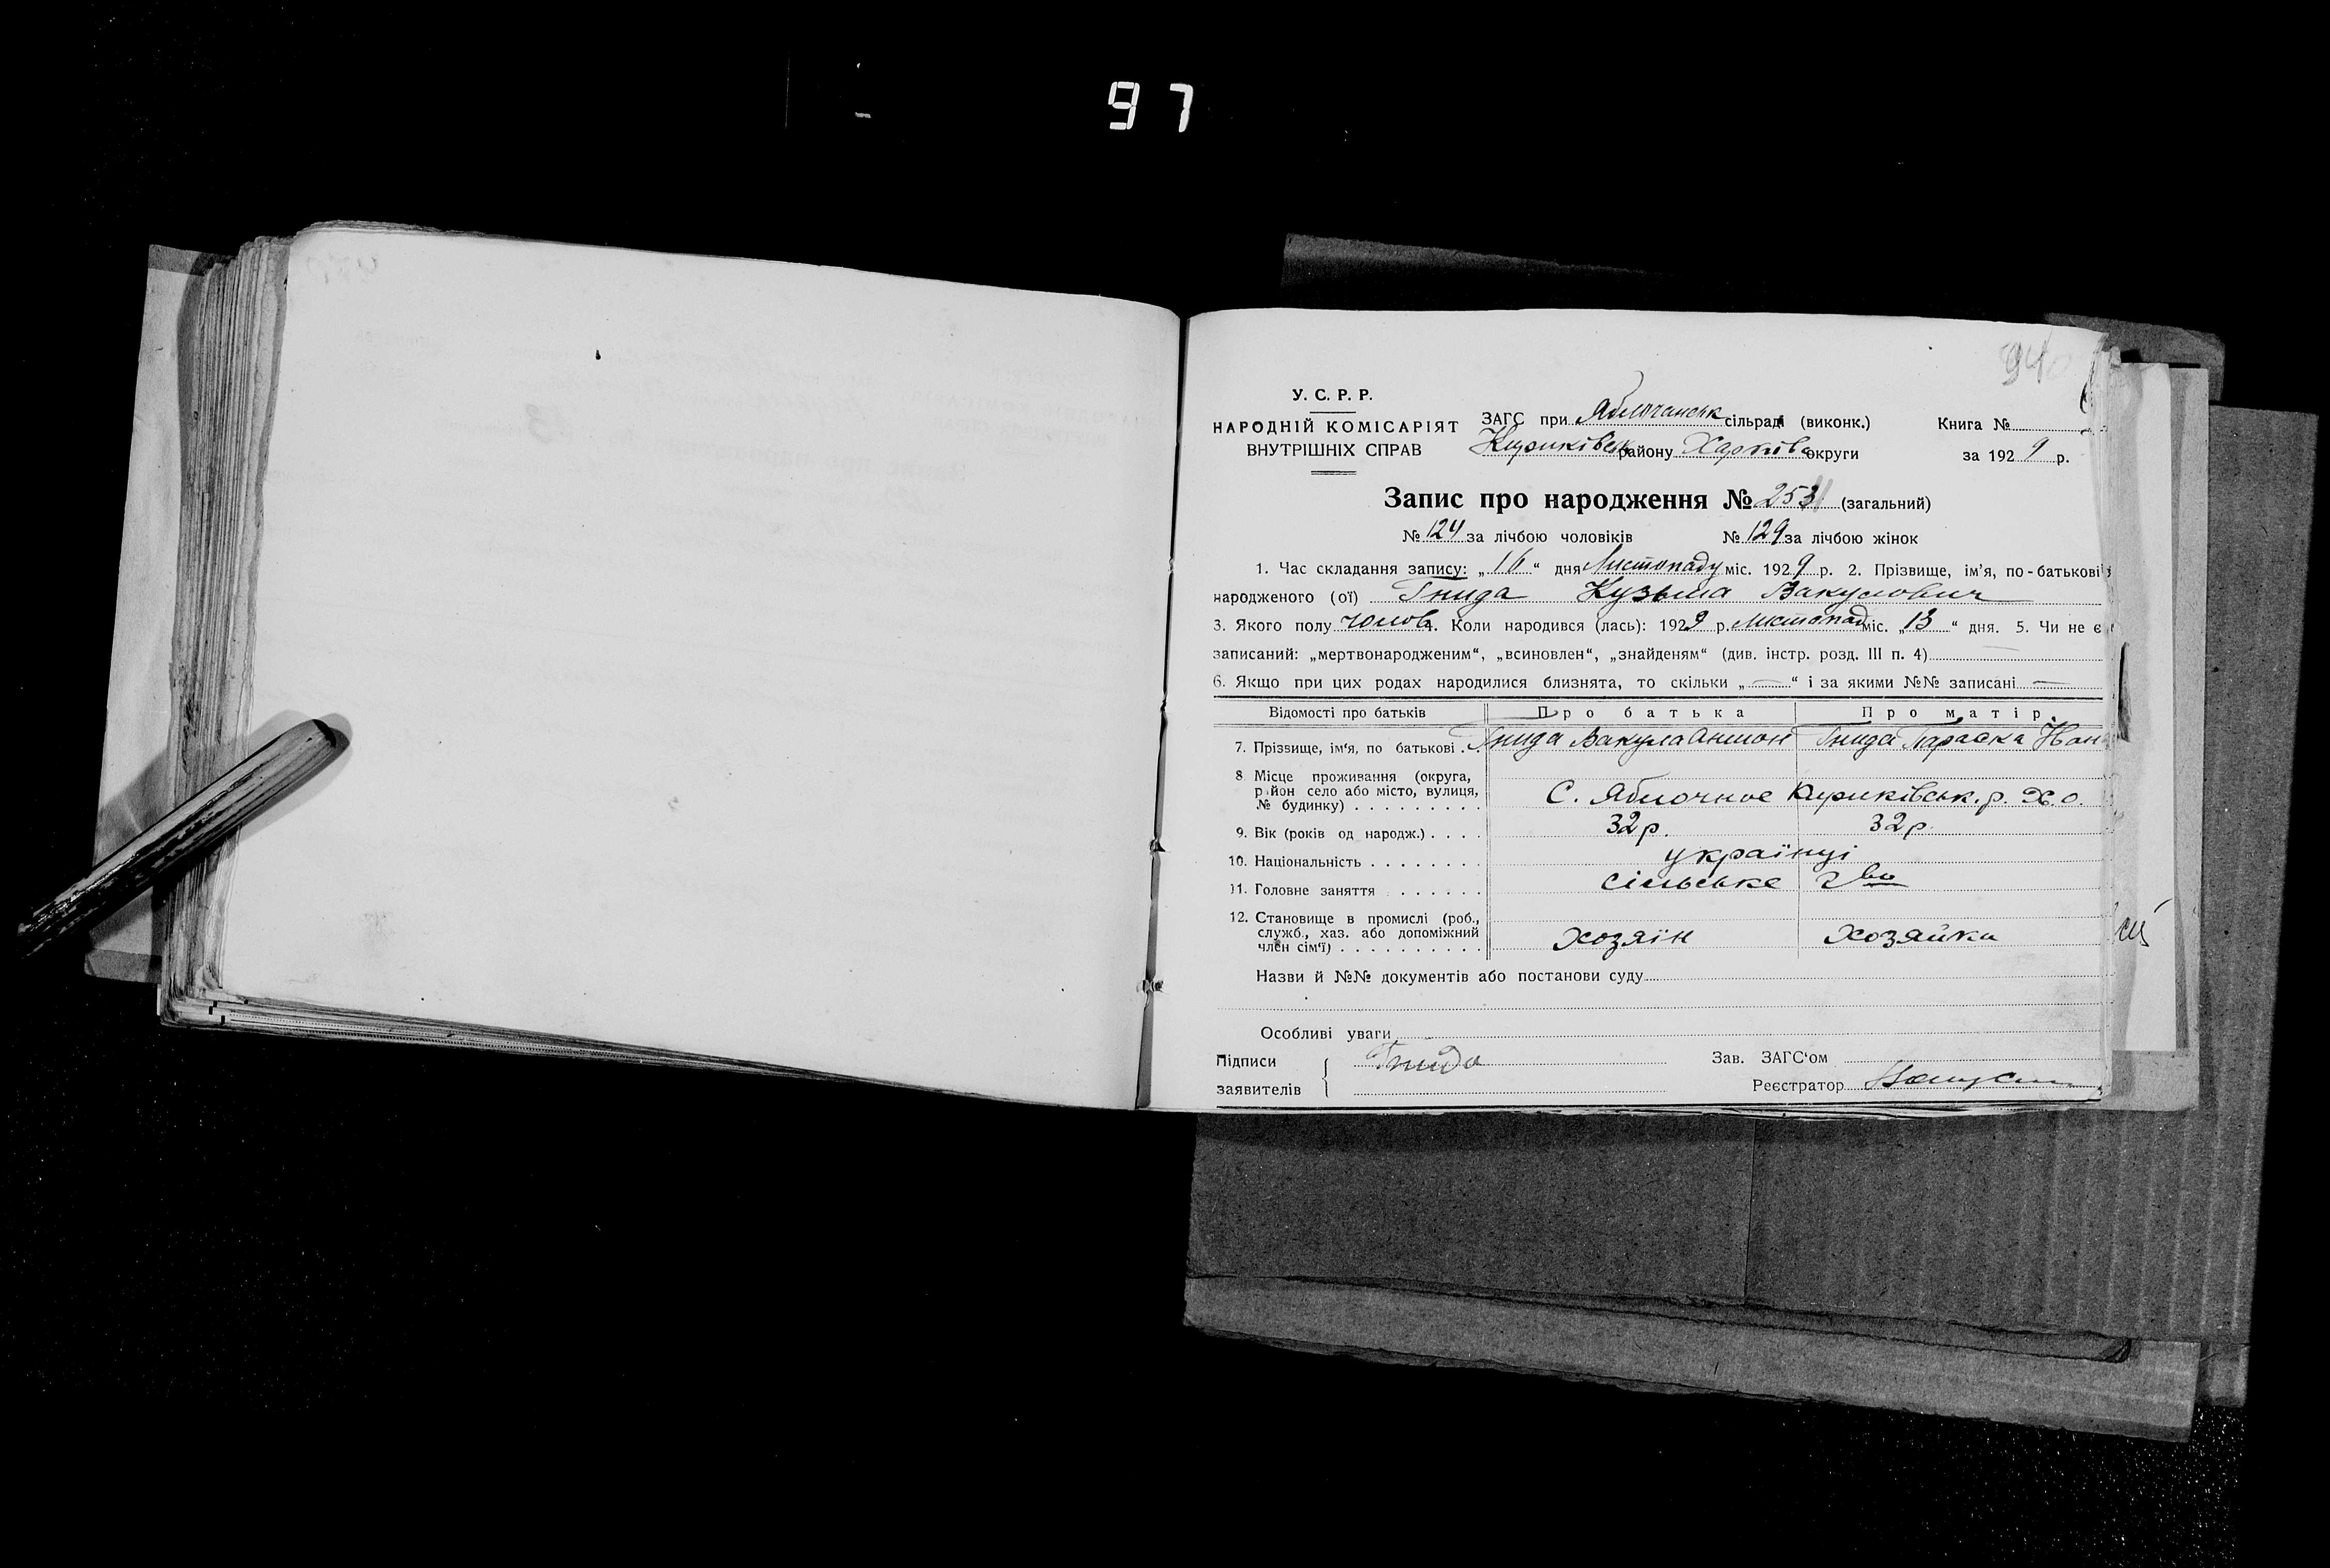 97
94
У. С. Р. Р.
НАРОДНІЙ КОМІСАРІЯТ
ВНУТРІШНІХ СПРАВ
ЗАГС при Яблочанськ сільраді (виконк.)
Кириківськ району Харківс округи
Книга №
за 1929 р.
Запис про народження № 253 (загальний)
№ 124 за лічбою чоловіків № 129 за лічбою жінок
1. Час складання запису: „16“ дня Листопаду міс. 1929 р. 2. Прізвище, ім'я, по-батькові
народженого (ої) Гнида Кузьма Вакулович
3. Якого полу чолов. 4. Коли народився (лась): 1929 р. листопад міс. „13“ дня. 5. Чи не є
записаний: „мертвонародженим“, „всиновлен“, „знайденям“ (див. інстр. розд. III п. 4)
6. Якщо при цих родах народилися близнята, то скільки „—“ і за якими №№ записані —
Відомості про батьків Про батька Про матір
7. Прізвище, ім'я, по батькові . Гнида Вакула Антон Гнида Параска
8 Місце проживання (округа,
район село або місто, вулиця,
№ будинку) . . . . . . . . . С. Яблочное Кириківськ. р. Х. о.
9. Вік (років од народж.) . . . . 32 р. 32 р.
10. Національність . . . . . . . . українці
11. Головне заняття . . . . . . сільське г-во
12. Становище в промислі (роб.,
служб., хаз. або допоміжний
член сім'ї) . . . . . . . . . . хозяїн хозяйка
Назви й №№ документів або постанови суду
Особливі уваги
Підписи
заявителів
Гнида
Зав. ЗАГС'ом
Реєстратор